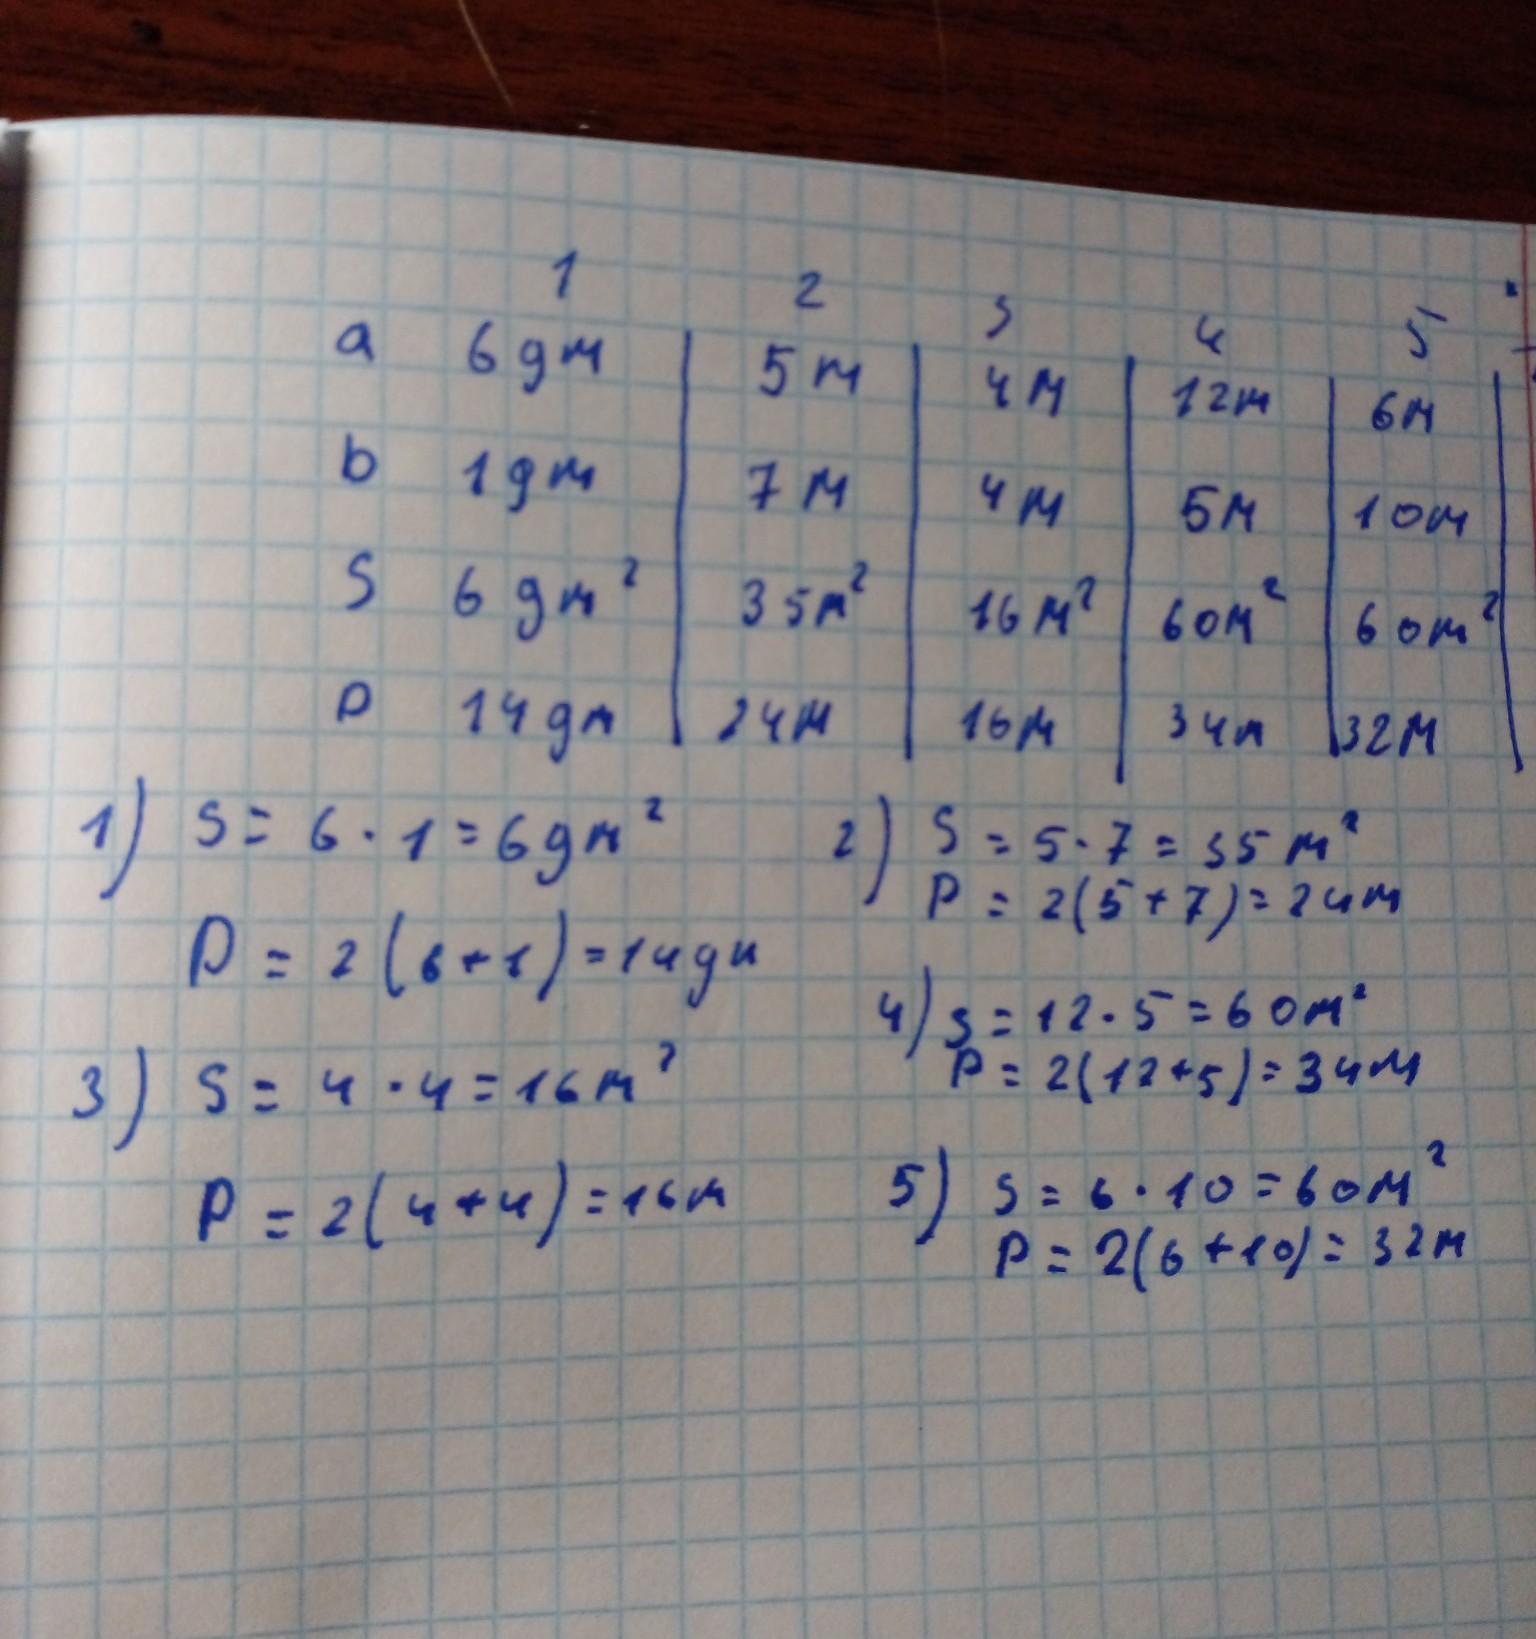 1 2 3 4 5
a 6 дм 5 м 4 м 12 м 6 м
b 1 дм 7 м 4 м 5 м 10 м
S 6 дм² 35 м² 16 м² 60 м² 60 м²
P 14 дм 24 м 16 м 34 м 32 м
1) S = 6 · 1 = 6 дм²
P = 2 (6 + 1) = 14 дм
2) S = 5 · 7 = 35 м²
P = 2(5 + 7) = 24 м
3) S = 4 · 4 = 16 м²
P = 2(4 + 4) = 16 м
4) S = 12 · 5 = 60 м²
P = 2(12+5) = 34 м
5) S = 6 · 10 = 60 м²
P = 2(6 + 10) = 32 м